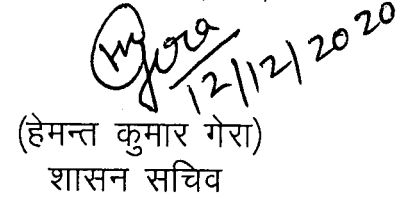 Gera
12/12/2020
(हेमन्त कुमार गेरा)
शासन सचिव